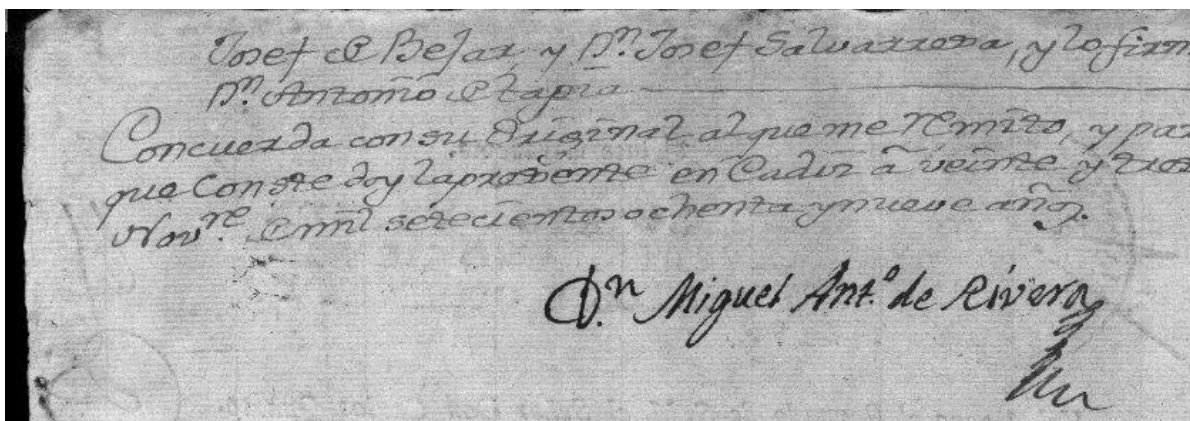 Josef de Bejar, y Dn. Josef Salvarrona, y lo firm
Dn. Antonio de Tapia
Concuerda con su Original al que me remito, y par
que Conste doy la presente en Cadiz â veinte y tres
Novre. de mil setecientos ochenta y nueve años.
Dn. Miguel Ant.º de Rivera